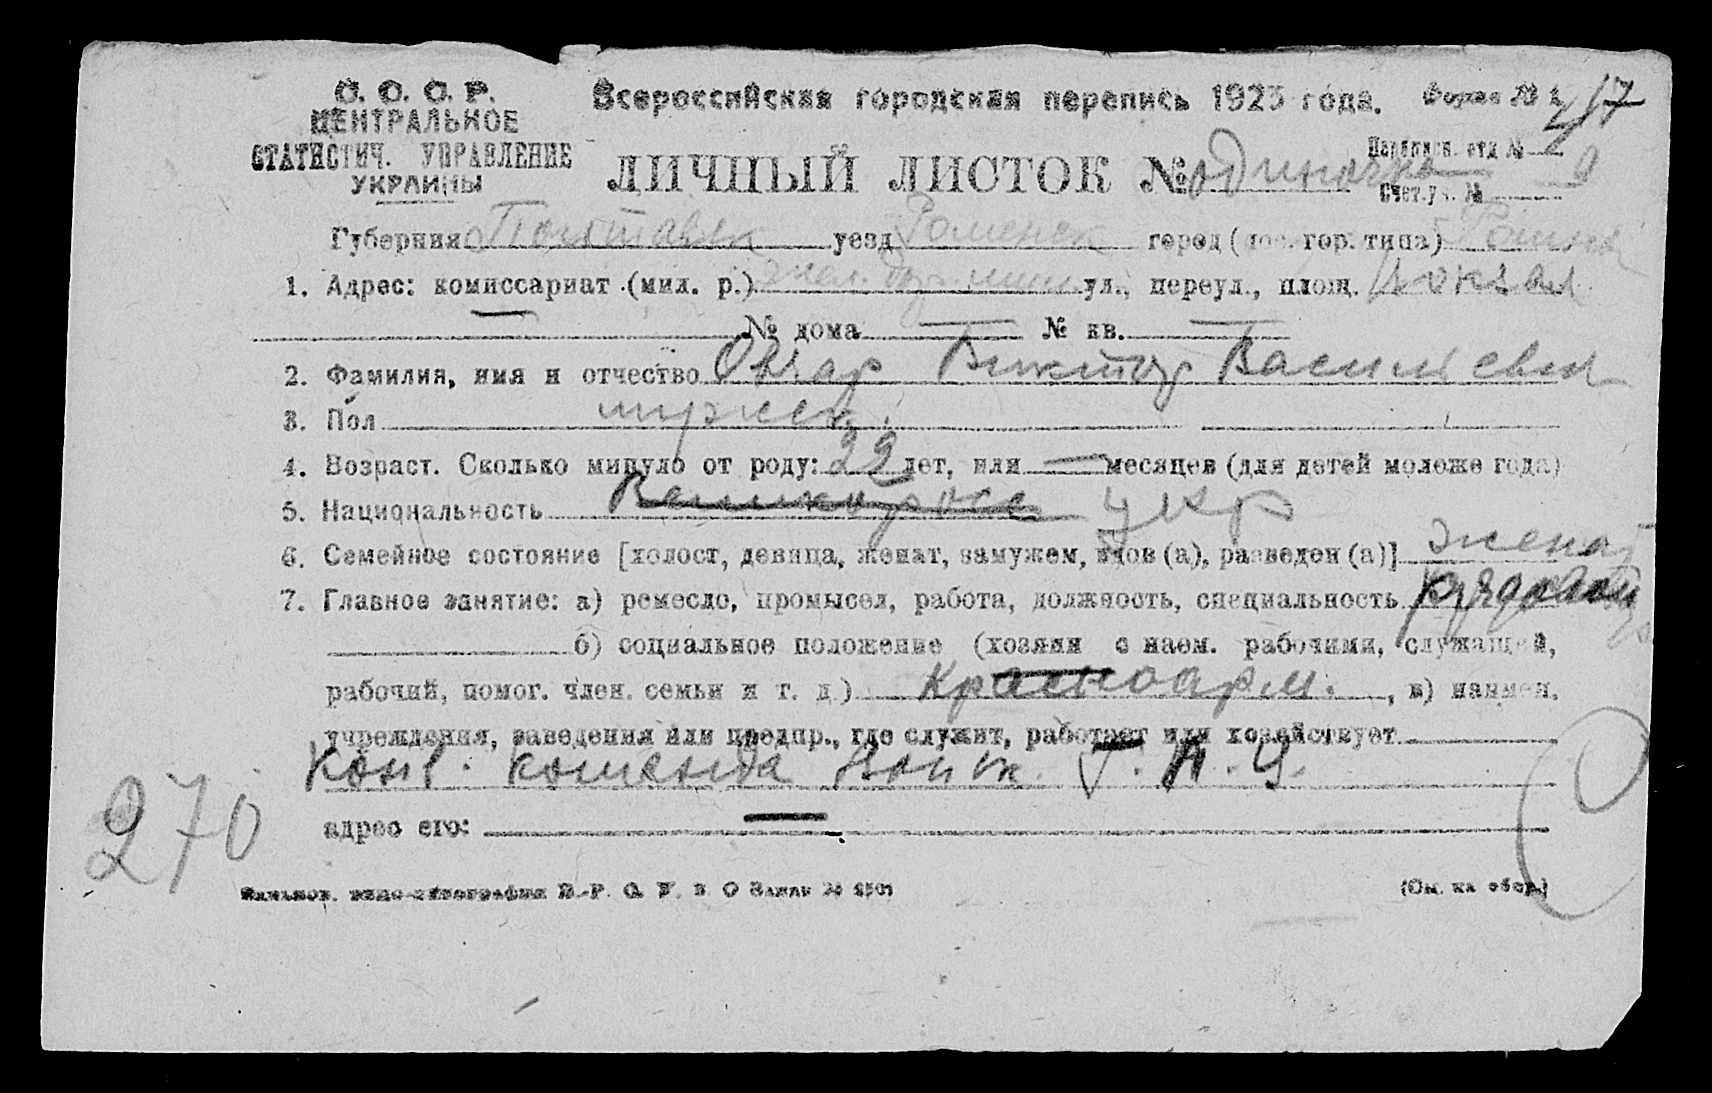 С. С. С. Р.
ЦЕНТРАЛЬНОЕ
СТАТИСТИЧ. УПРАВЛЕНИЕ
УКРАИНЫ
Всероссийская городская перепись 1923 года.
Форма № 1
17
ЛИЧНЫЙ ЛИСТОК № одиночка
Переписн. отд №
Счет. уч. № 9
Губерния Полтавск уезд Роменск город (пос. гор. типа) Ромны
1. Адрес: комиссариат (мил. р.) жел. дор. ул., переул., площ. Вокзал
— № дома — № кв. —
2. Фамилия, имя и отчество Овчар Виктор Васильевич
3. Пол мужск.
4. Возраст. Сколько минуло от роду: 22 лет, или — месяцев (для детей моложе года)
5. Национальность Великоросс укр
6. Семейное состояние [холост, девица, женат, замужем, вдов (а), разведен (а)] женат
7. Главное занятие: а) ремесло, промысел, работа, должность, специальность
б) социальное положение (хозяин с наем. рабочими, служащий,
рабочий, помог. член. семьи и т. д.) Красноарм. , в) наимен.
учреждения, заведения или предпр., где служит, работает или хозяйствует
Конв. команда Войск Г. П. У.
адрес его: —
270
В.-Р. О. У. В. О Заказ №
(См. на обор.)